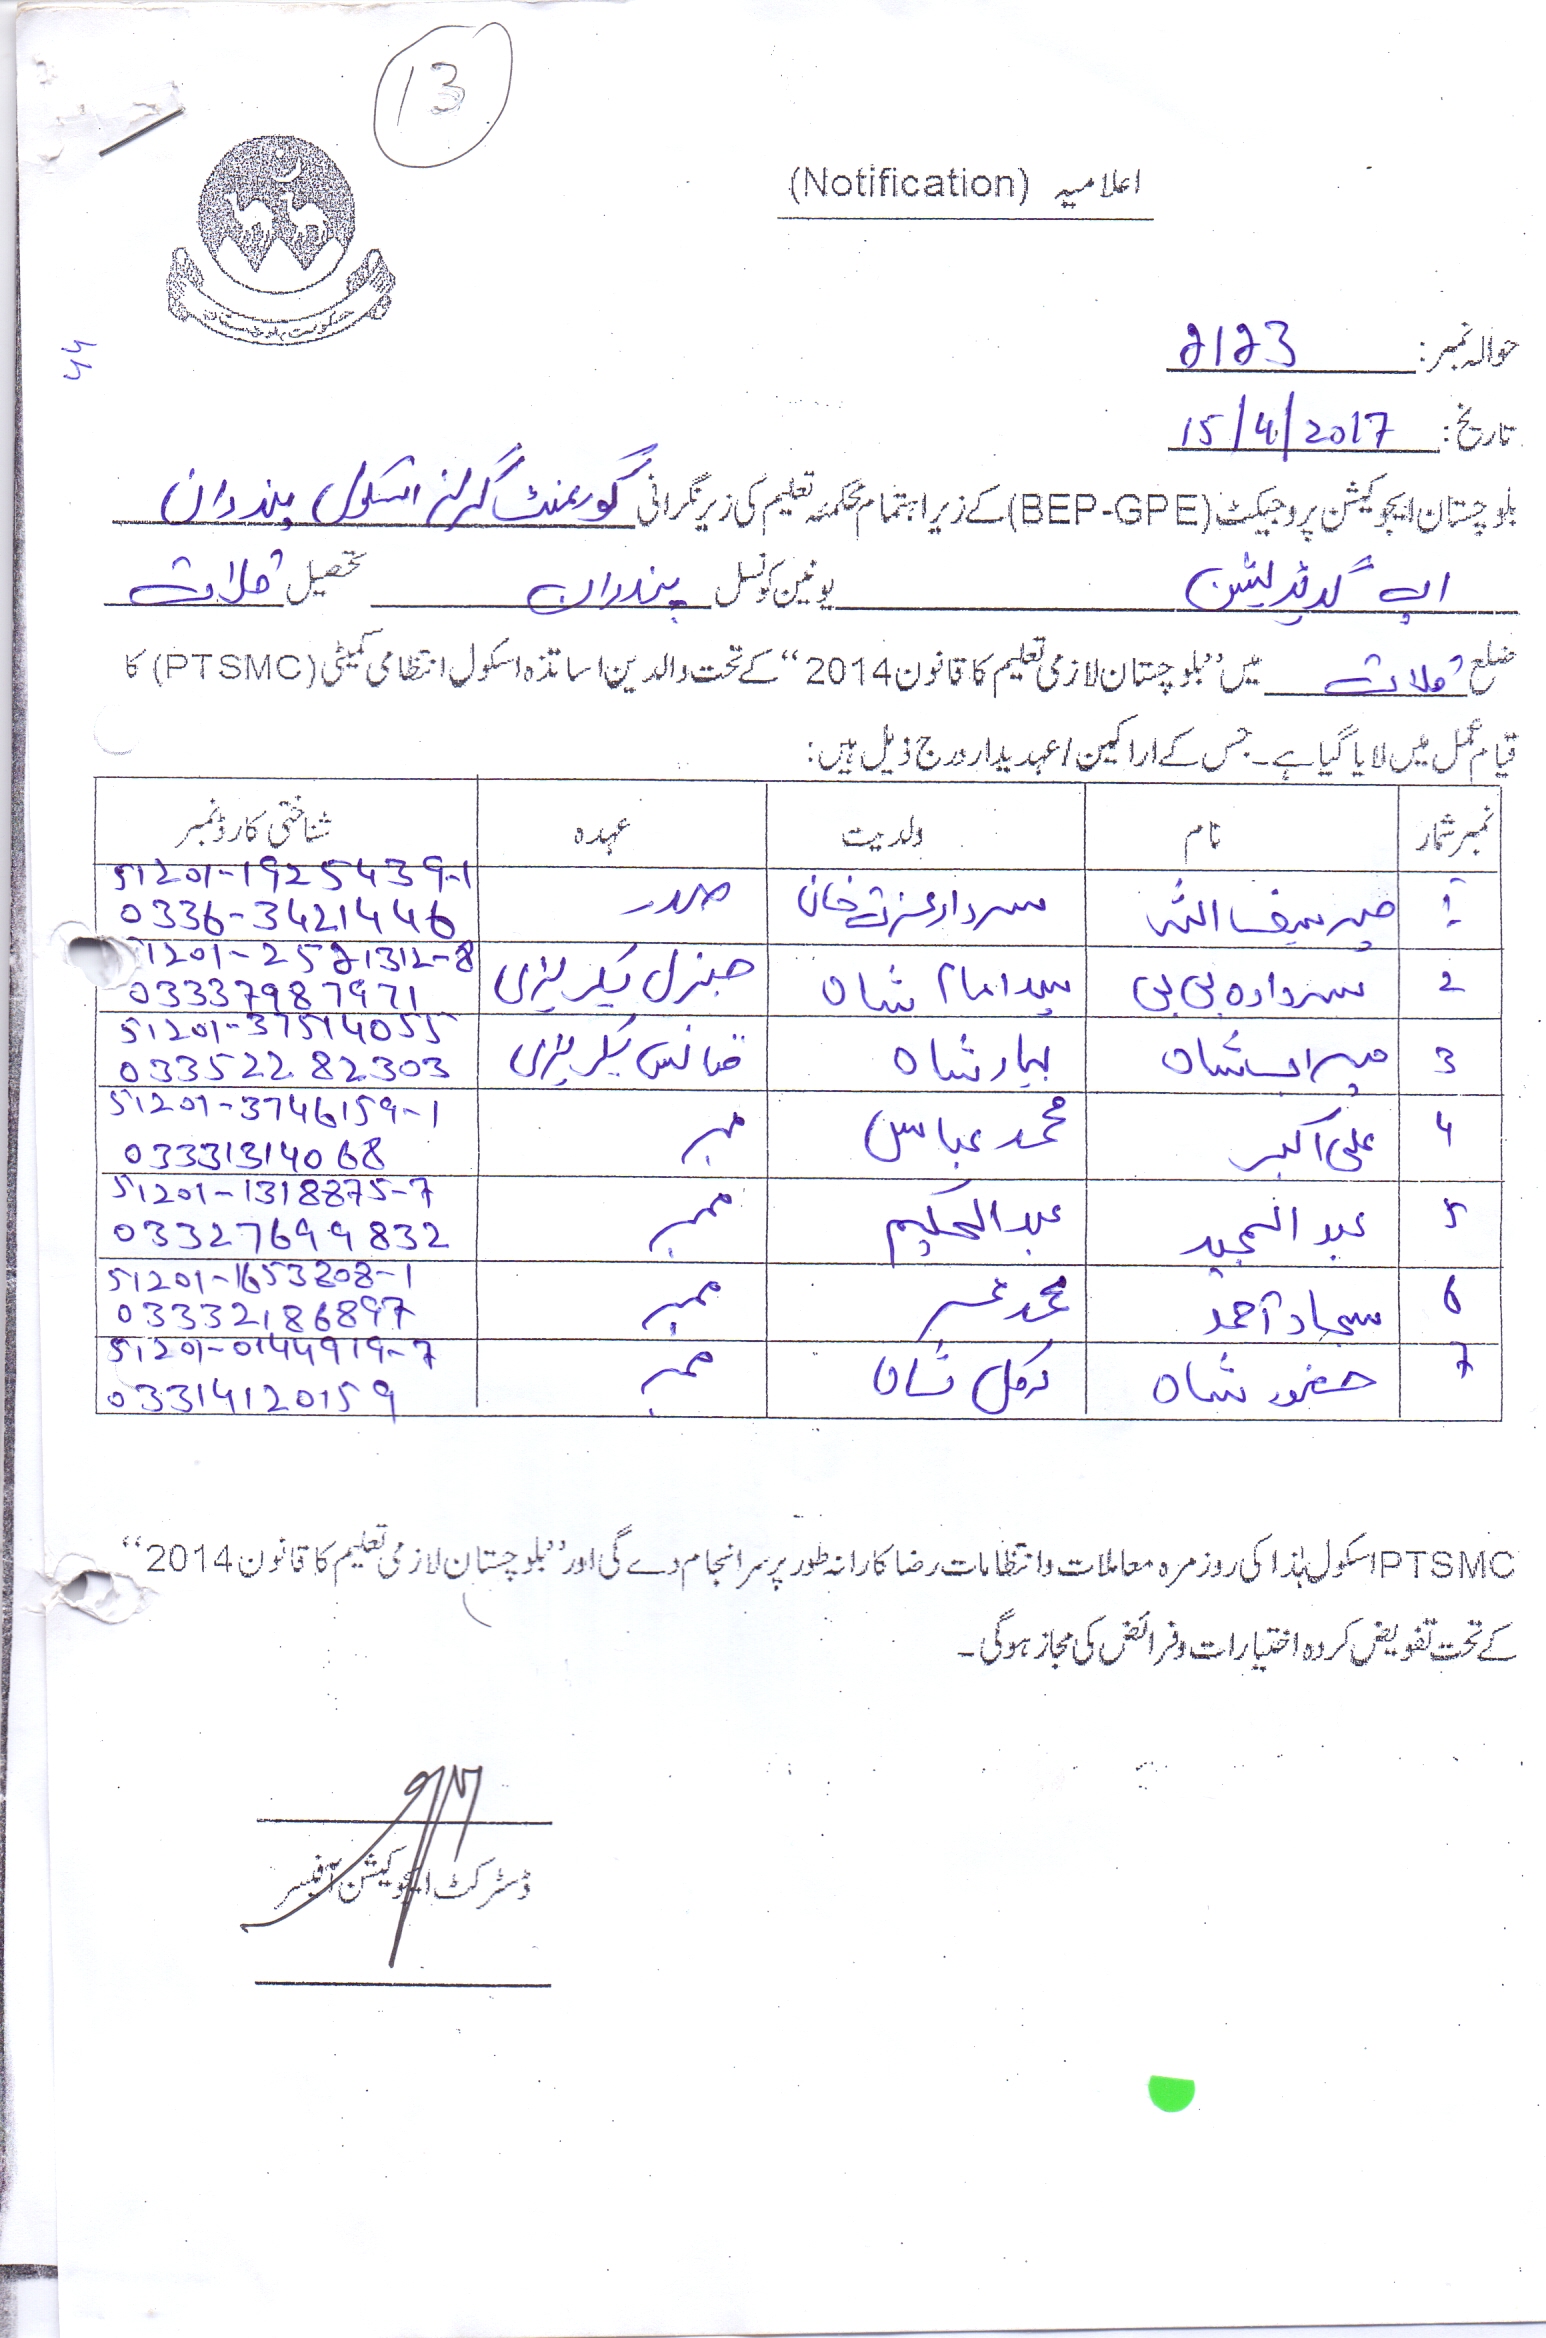 13
اعلامیہ (Notification)
حکومت بلوچستان
44
حوالہ نمبر: 2123
تاریخ: 15/4/2017
بلوچستان ایجوکیشن پروجیکٹ (BEP-GPE) کے زیر اہتمام محکمہ تعلیم کی زیر نگرانی گورنمنٹ گرلز اسکول پندران
اپ گریڈیشن یونین کونسل پندران تحصیل قلات
ضلع قلات میں ”بلوچستان لازمی تعلیم کا قانون 2014“ کے تحت والدین اساتذہ اسکول انتظامی کمیٹی (PTSMC) کا
قیام عمل میں لایا گیا ہے۔ جس کے اراکین/عہدیدار درج ذیل ہیں:
نمبر شمار نام ولدیت عہدہ شناختی کارڈ نمبر
1 میر سیف اللہ سردار عزت خان صدر 51201-1925439-1
0336-3421446
2 سردارہ بی بی سید امام شاہ جنرل سیکریٹری 51201-2521312-8
03337987971
3 میراب شاہ بہار شاہ فنانس سیکریٹری 51201-37514055
03352282303
4 علی اکبر محمد عباس ممبر 51201-3746159-1
03331314068
5 عبدالمجید عبدالحکیم ممبر 51201-1318875-7
03327699832
6 سجاد احمد محمد عمر ممبر 51201-1653208-1
03332186897
7 حضور شاہ شاہ ممبر 51201-0144919-7
03314120159
PTSMC اسکول ہٰذا کی روزمرہ معاملات و انتظامات رضاکارانہ طور پر سرانجام دے گی اور ”بلوچستان لازمی تعلیم کا قانون 2014“
کے تحت تفویض کردہ اختیارات و فرائض کی مجاز ہوگی۔
ڈسٹرکٹ ایجوکیشن آفیسر